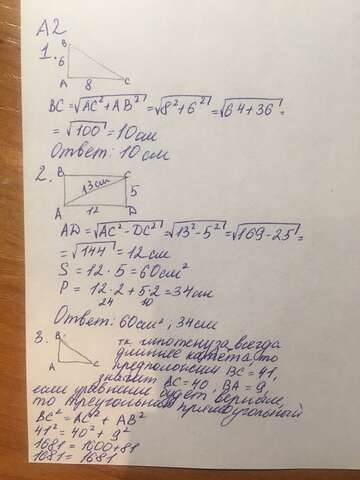 А2
1.
B
6
A 8 C
BC = √AC² + AB² = √8² + 6² = √64 + 36 =
= √100 = 10 см
Ответ: 10 см
2.
B C
13 см 5
A 12 D
AD = √AC² - DC² = √13² - 5² = √169 - 25 =
= √144 = 12 см
S = 12 · 5 = 60 см²
P = 12 · 2 + 5 · 2 = 34 см
24 10
Ответ: 60 см², 34 см
3. B
A C
тк гипотенуза всегда
длиннее катета то
предположим BC = 41,
значит AC = 40, BA = 9,
если уравнение будет верным,
то треугольник прямоугольный
BC² = AC² + AB²
41² = 40² + 9²
1681 = 1600 + 81
1681 = 1681